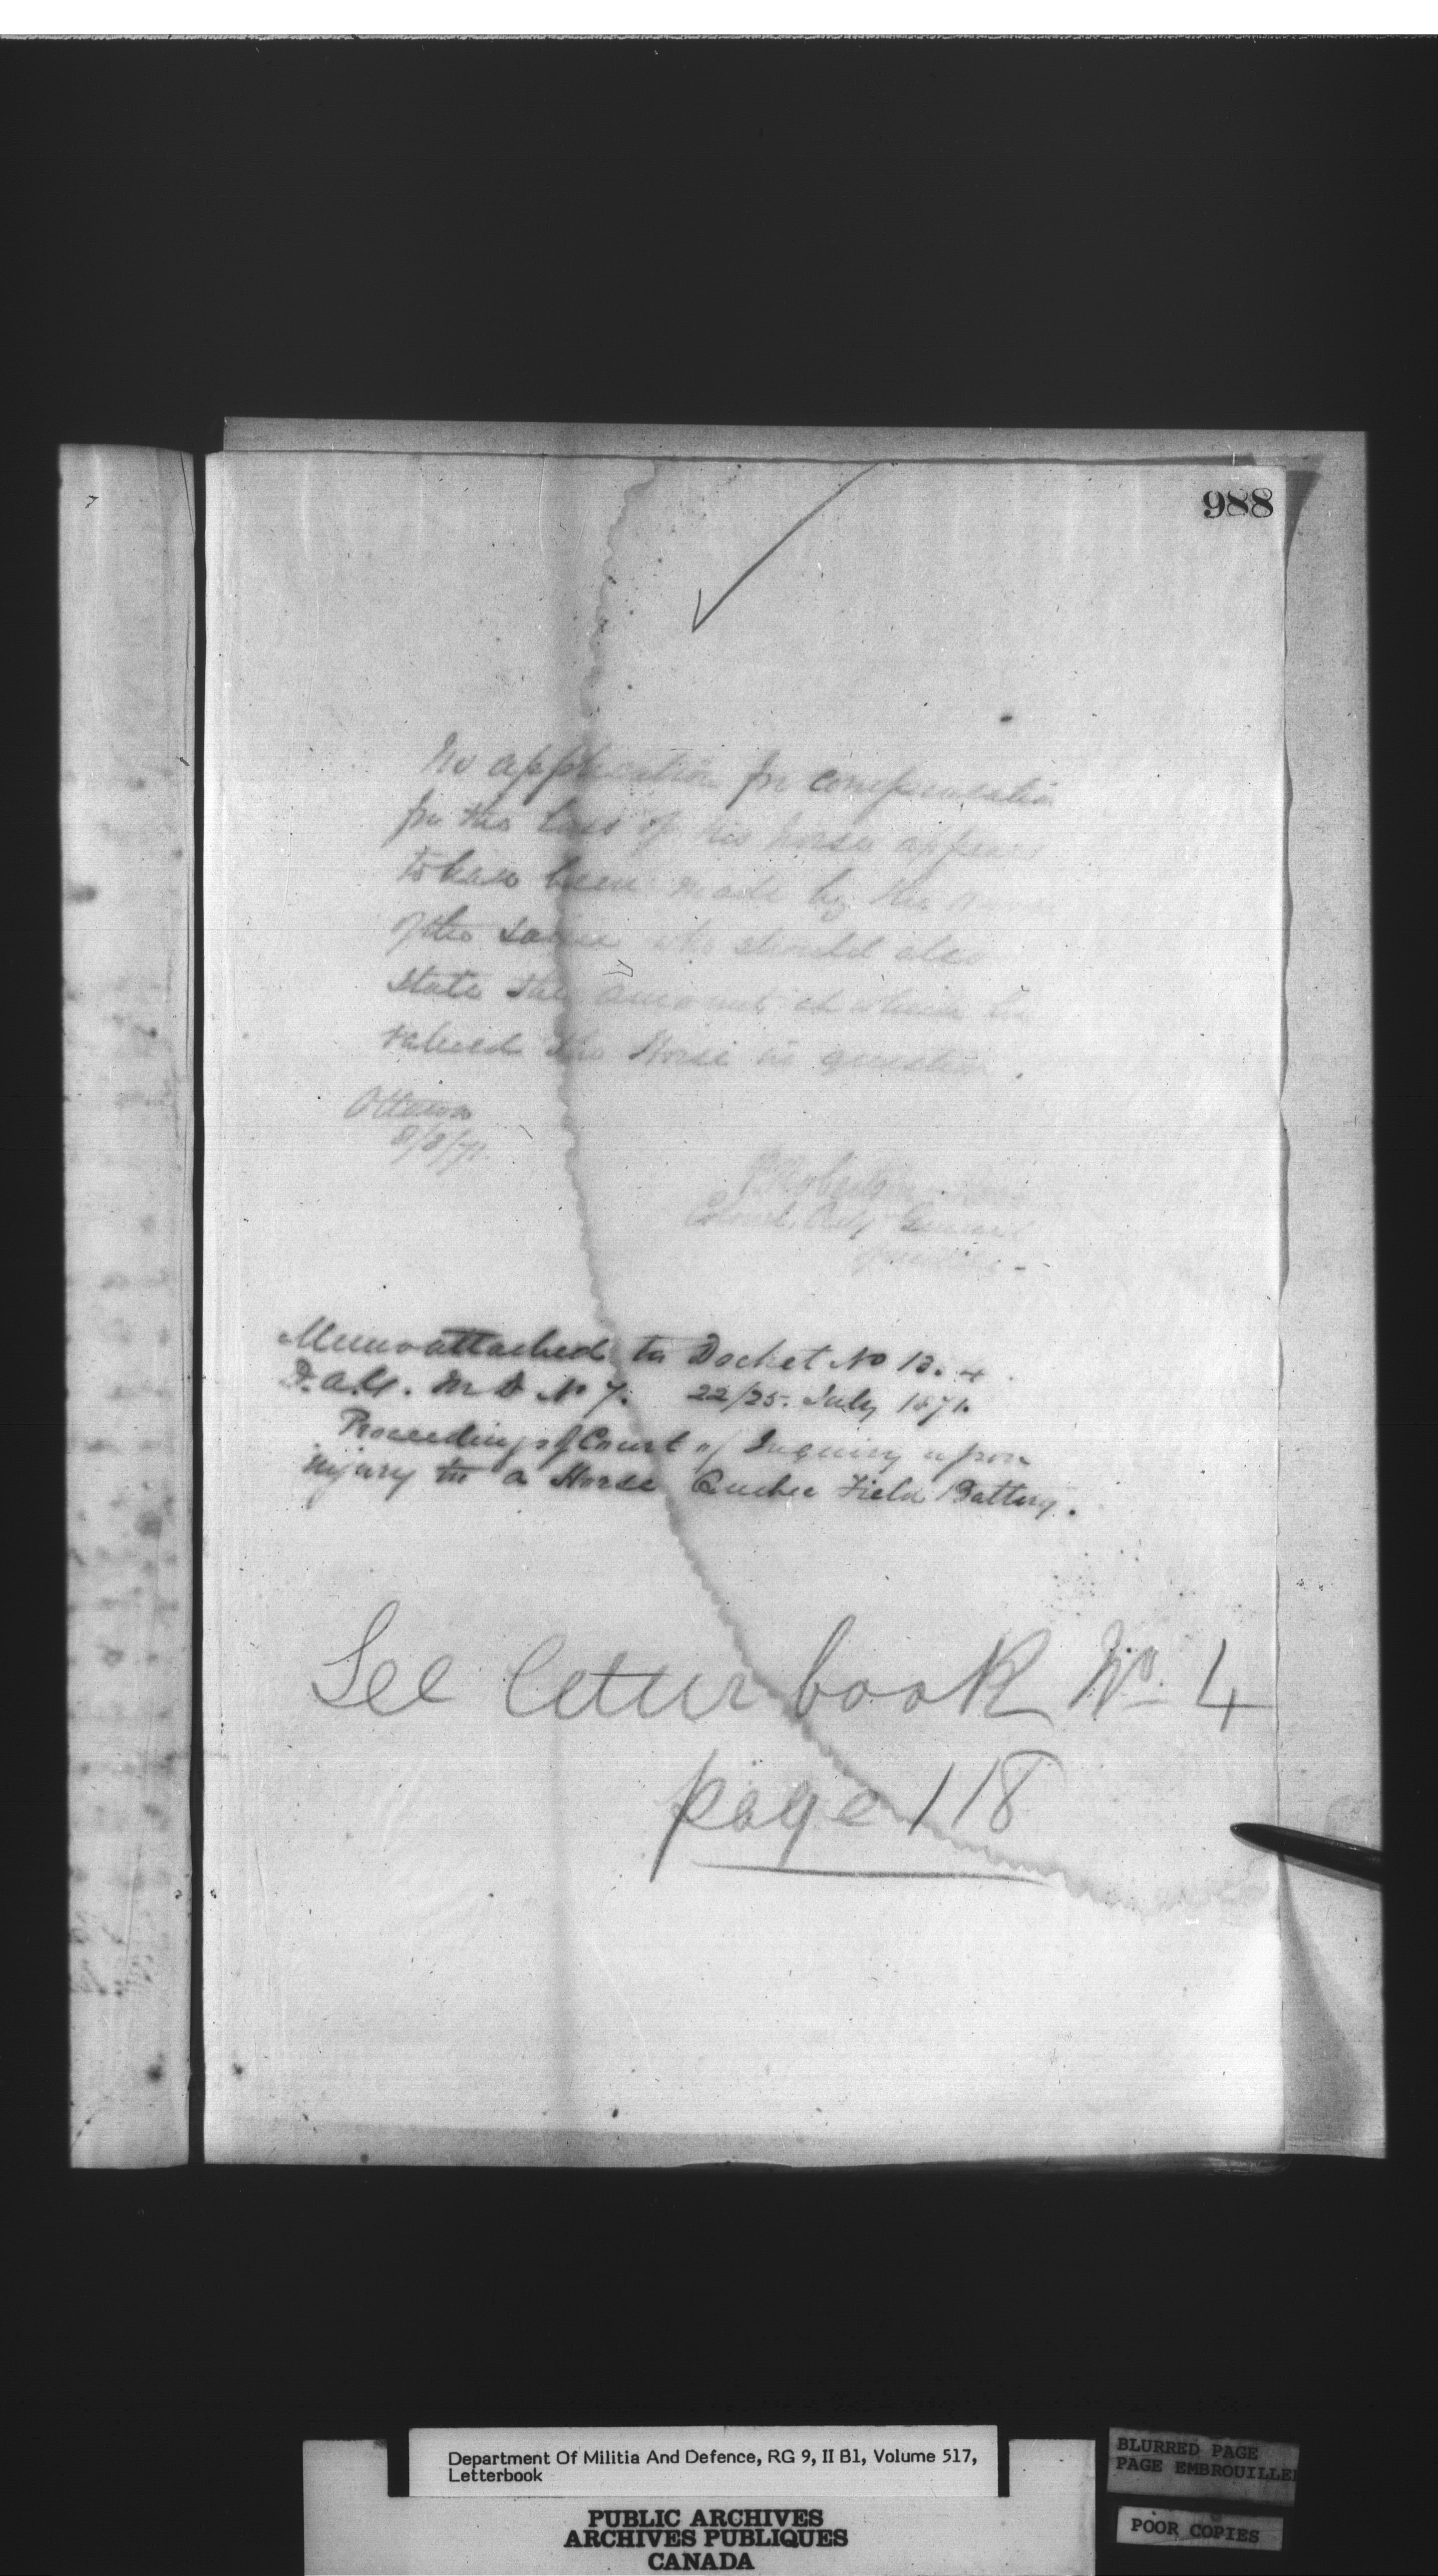 988
No application for compensation
for the loss of his horse appears
to have been made by the owner
of the same who should also
state the amount at which he
valued the Horse in question.
Ottawa
8/8/71.
P. Robertson Ross
Colonel. Adjt General
of Militia -
Memo attached to Docket No 13. 4
D. A. G. M D No 7. 22/25. July 1871.
Proceedings of Court of Inquiry upon
injury to a Horse Quebec Field Battery.
See letter book No. 4
page 118
Department Of Militia And Defence, RG 9, II B1, Volume 517,
Letterbook
BLURRED PAGE
PAGE EMBROUILLEE
POOR COPIES
PUBLIC ARCHIVES
ARCHIVES PUBLIQUES
CANADA